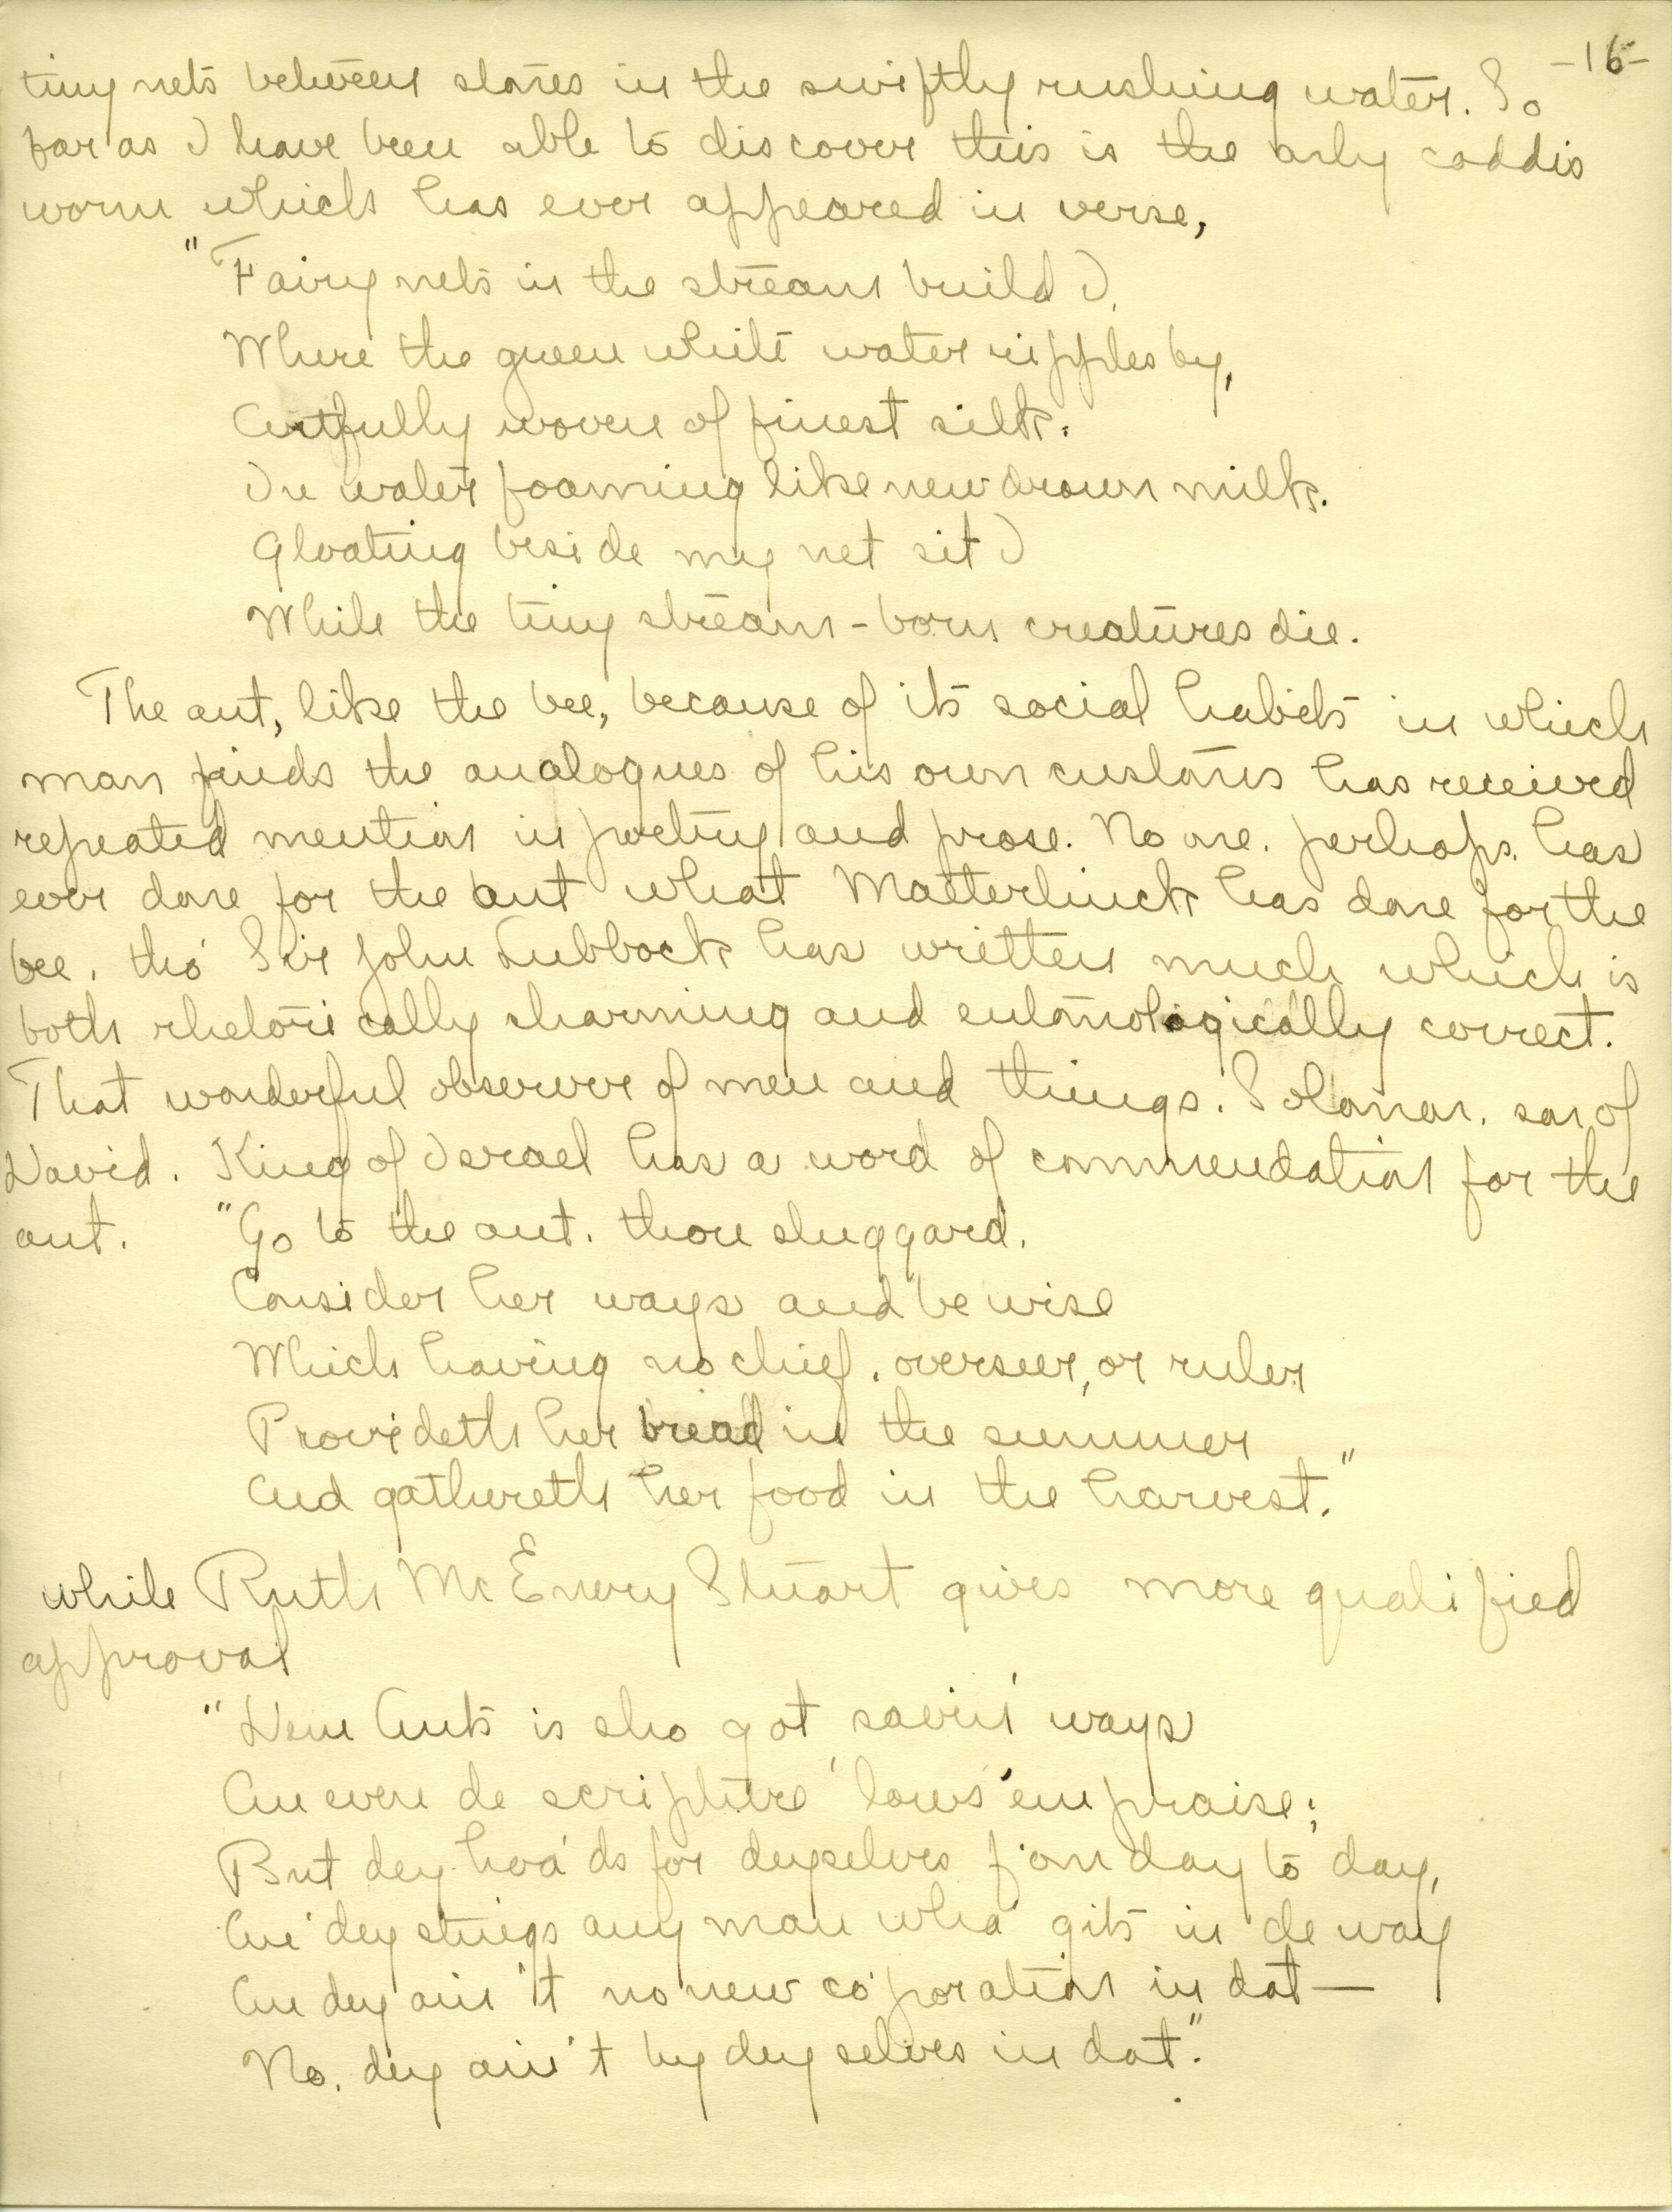 -16-
tiny nets between stones in the swiftly rushing water. So
far as I have been able to discover this is the only caddis
worm which has ever appeared in verse,
"Fairy nets in the stream build I,
Where the green white water ripples by,
Artfully woven of finest silk.
In water foaming like new drawn milk.
Gloating beside my net sit I
While the tiny stream-born creatures die.
The ant, like the bee, because of its social habits in which
man finds the analogues of his own customs has received
repeated mention in poetry and prose. No one, perhaps, has
ever done for the ant what Maeterlinck has done for the
bee, tho' Sir John Lubbock has written much which is
both rhetorically charming and entomologically correct.
That wonderful observer of men and things, Solomon, son of
David, King of Israel has a word of commendation for the
ant. "Go to the ant, thou sluggard,
Consider her ways and be wise
Which having no chief, overseer, or ruler
Provideth her bread in the summer
And gathereth her food in the harvest."
while Ruth McEnery Stuart gives more qualified
approval
"Dem Ants is sho got savin' ways
An even de scripture 'lows 'em praise;
But dey hoa'ds for deyselves f'om day to day,
An' dey stings any man wha' gits in de way
An dey ain't no new co'poration in dat—
No, dey ain't by deyselves in dat."